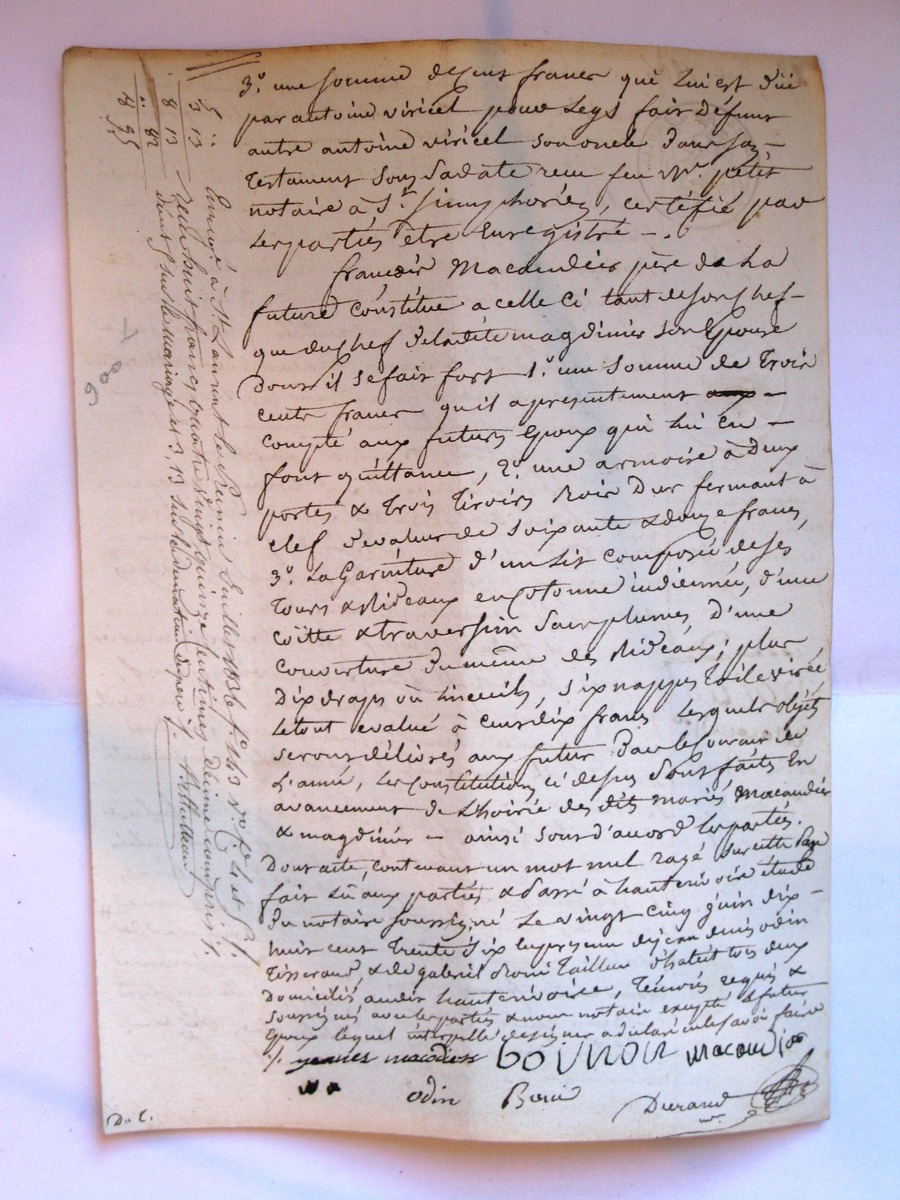 3.° une somme de cent francs qui lui est dûe
par antoine viricel pour legs fait Défunt
autre antoine viricel son oncle dans son
testament sous sa date reçu feu Mr. petit
notaire à St. Simphorien, certifié par
les parties être Enregistré -.
françois Macaudier père de la
future constitue a celle ci tant de son chef
que du chef de ladite magdinier son Epouse
Dont il se fait fort 1.° une somme de Trois
cents francs qu'il a presentement
compté aux futurs Epoux qui lui en
font quittance, 2.° une armoire à Deux
portes & trois tiroirs Bois Dur fermant à
clef De valeur de soixante & douze francs
3.° La Garniture d'un Lit composée de ses
tours & Rideaux en cotonne indiennée, d'une
coitte & traversin sans plumes, D'une
couverture Du même des Rideaux; plus
Dix draps ou linceuils, six nappes toile
le tout evalué à cent dix francs lesquels objets
seront délivrés aux futur Dans le courant de
L'année, les constitutions ci dessus sont faites En
avancement de L'hoirie des dits mariés Macaudier
& magdinier - ainsi sont d'accord les parties.
Dont acte, contenant un mot nul razé sur cette Page
fait Lû aux parties & Passé à hauterivoire étude
Du notaire soussigné Le vingt cinq juin dix
huit cent Trente six le present de jean denis odin
Tisserand, & de gabriel Tailleur D'habits tous deux
Domiciliés audit hauterivoire, témoins requis &
Soussignés avec les parties & nous notaire excepté le futur
Epoux lequel interpellé de signer a declaré ne le savoir faire
macaudier
odin
Durand
D. E.
Enregistré à St. Laurent le Premier Juillet 1836 f.° 143 V.°
Reçu huit francs quatre vingt quinze centimes décime compris
dont 5f sur le mariage et 3,13 sur la donation
5 "
3 13
8 13
" 82
8 95
900